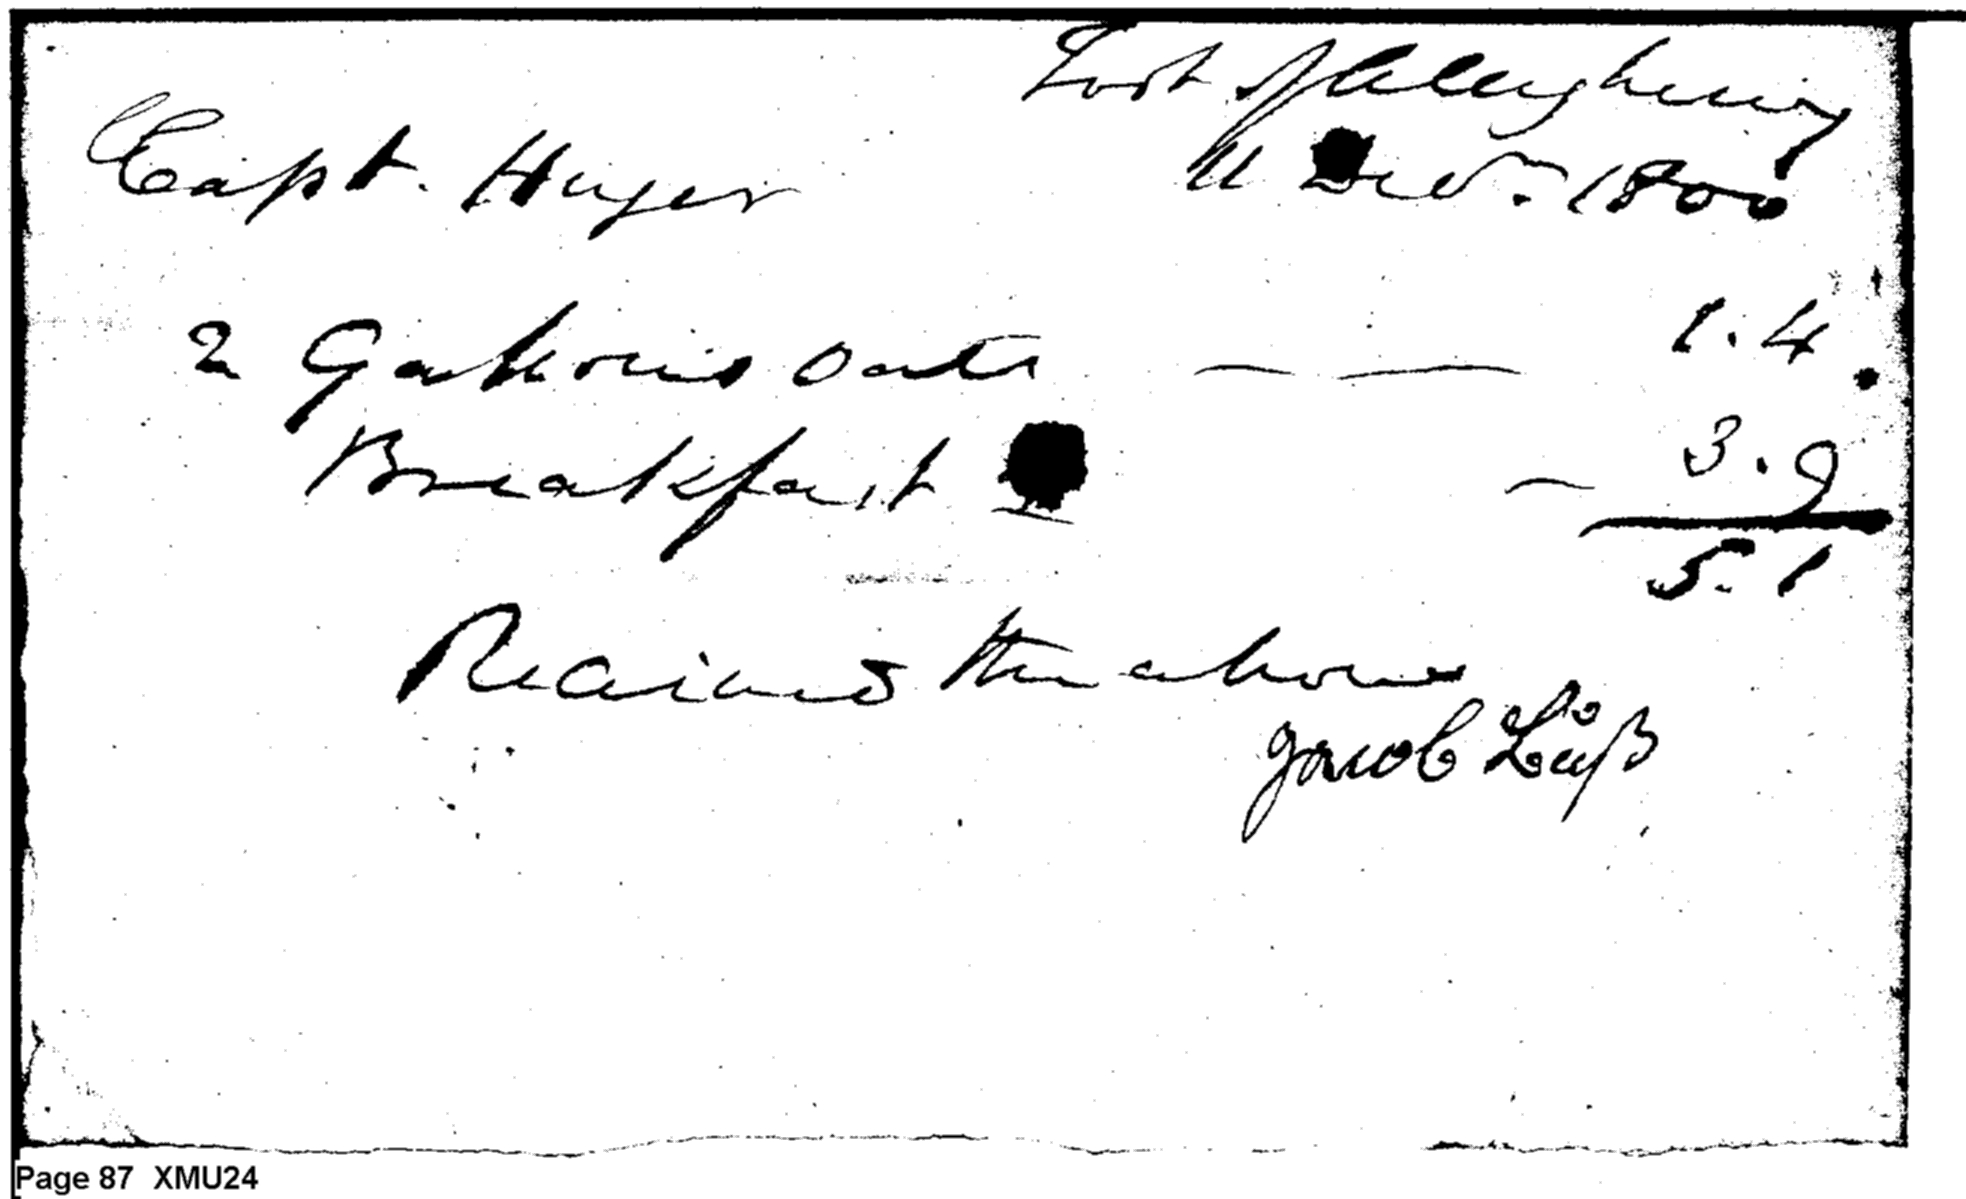 Foot Alleghany
Capt. Huger 11 Decr. 1800
2 Gallons Oats — — 1.4
Breakfast — 3.9
5.1
Received the above
Jacob
Page 87 XMU24